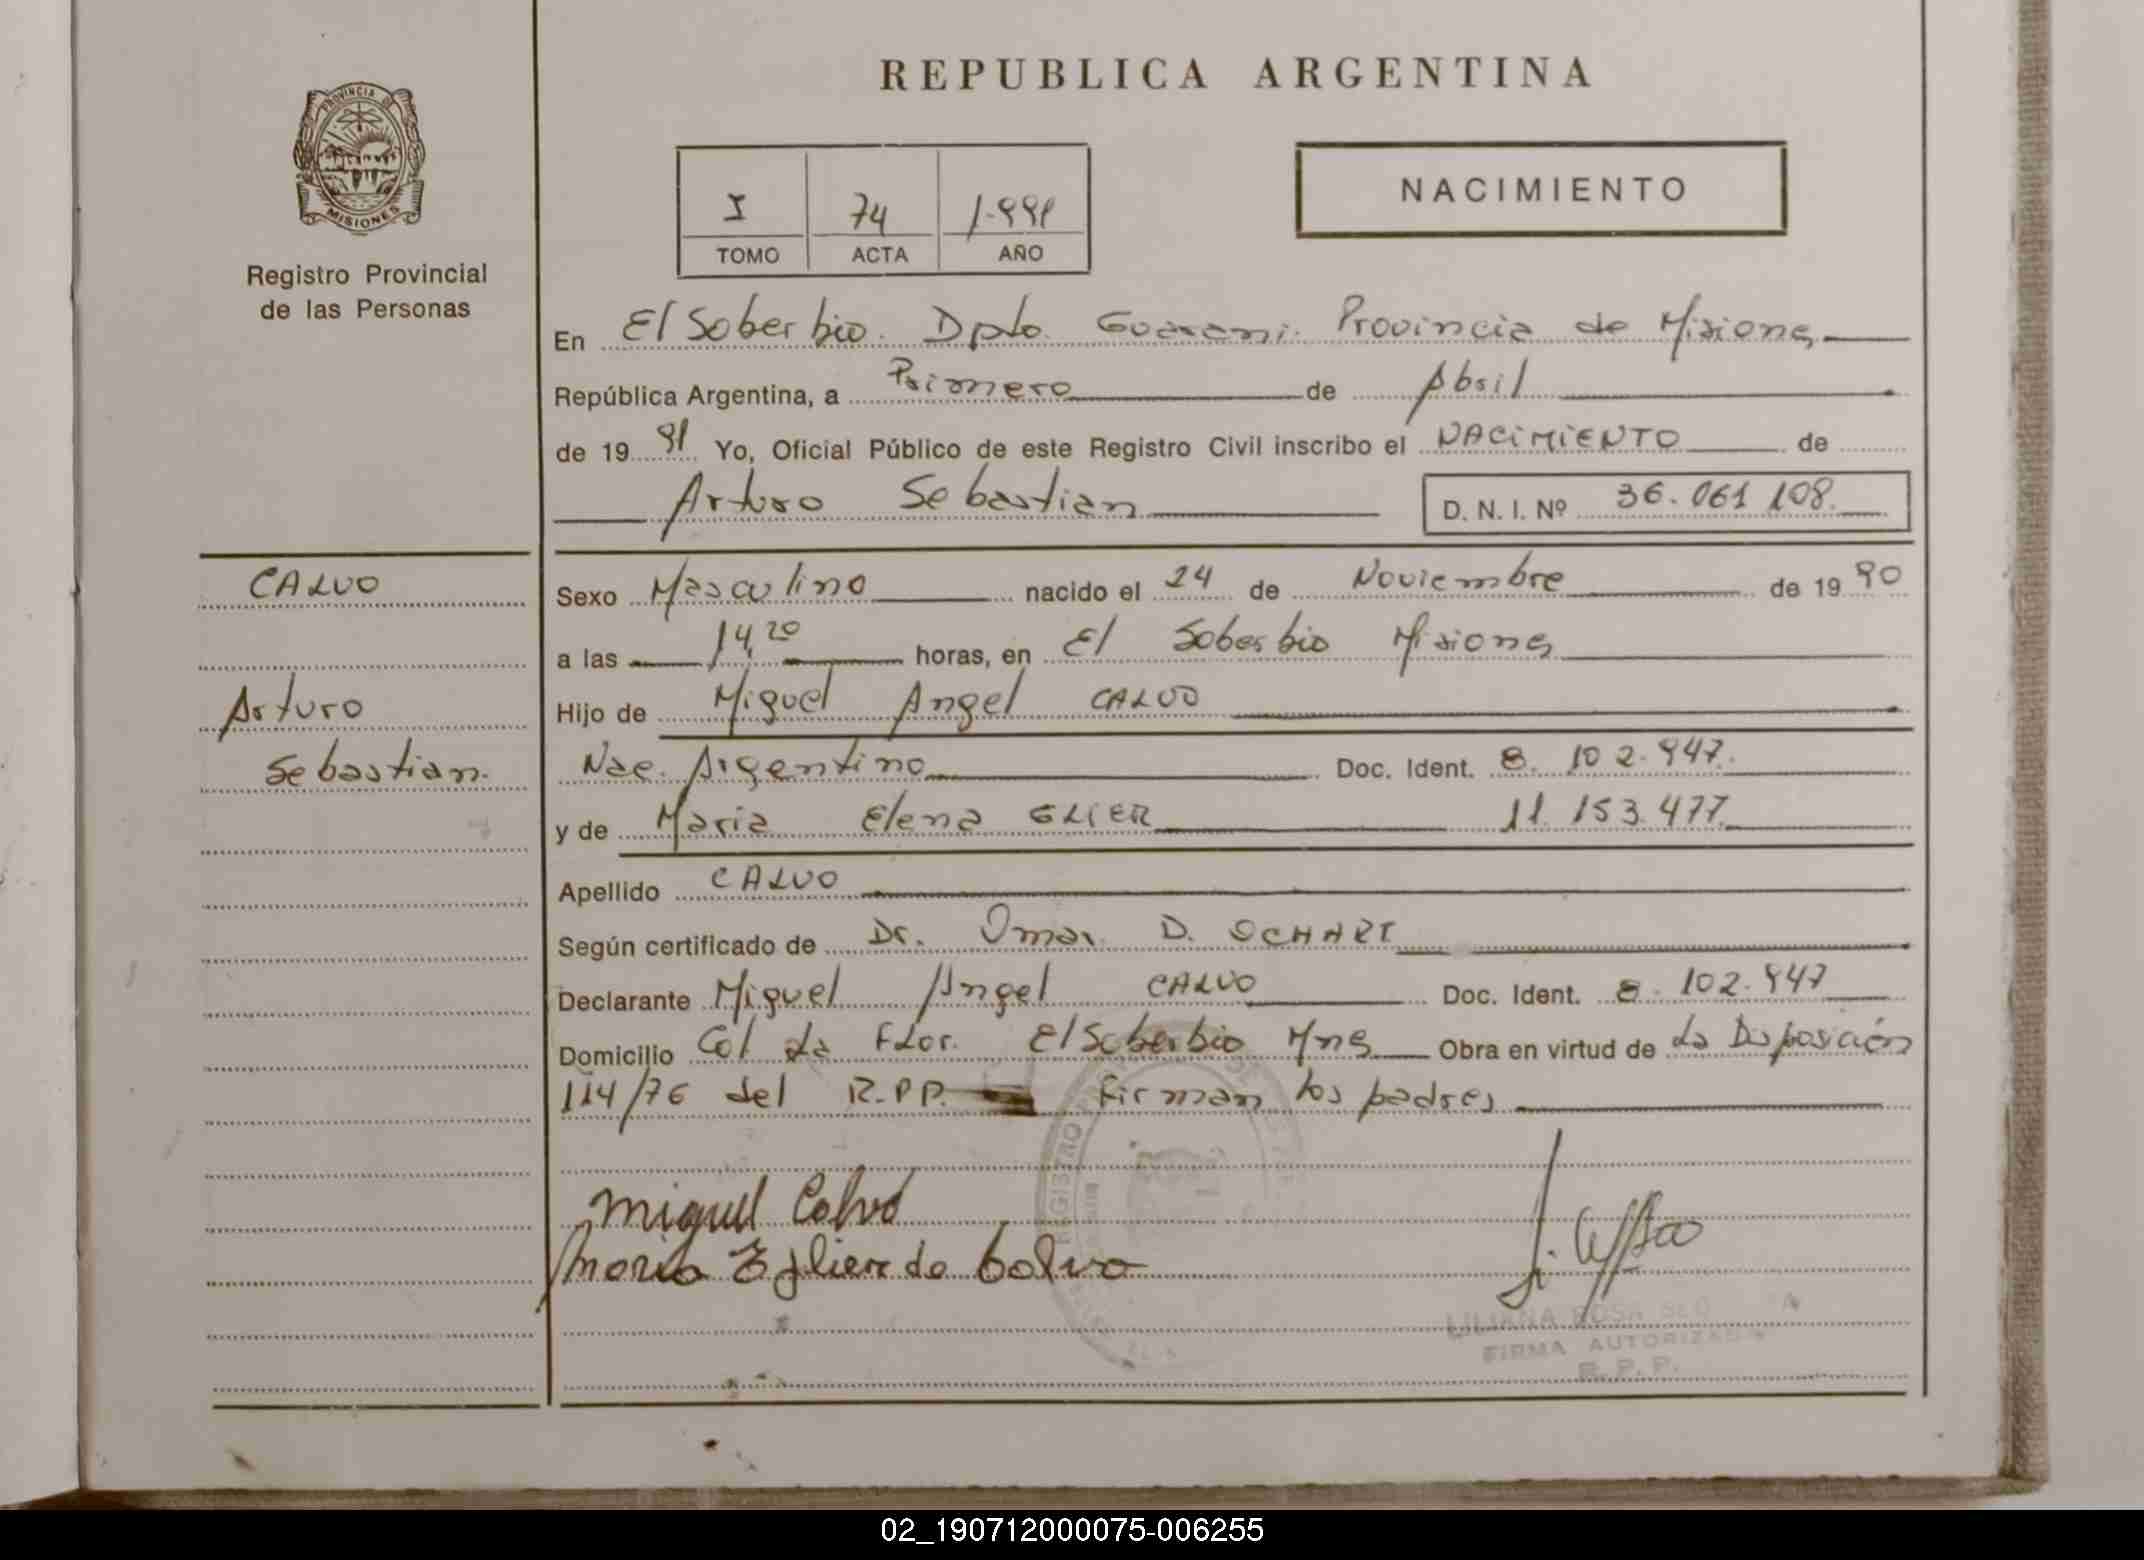 REPUBLICA ARGENTINA
PROVINCIA DE
MISIONES
Registro Provincial
de las Personas
I 74 1.991
TOMO ACTA AÑO
NACIMIENTO
En El Soberbio. Dpto. Guarani. Provincia de Misiones
República Argentina, a Primero de Abril
de 19 91 Yo, Oficial Público de este Registro Civil inscribo el NACIMIENTO de
Arturo Sebastian D. N. I. Nº 36.061.108.
CALVO
Arturo
Sebastian.
Sexo Masculino nacido el 24 de Noviembre de 19 90
a las 14,20 horas, en El Soberbio Misiones
Hijo de Miguel Angel CALVO
Nac. Argentino Doc. Ident. 8.102.947.
y de Maria Elena GLIER 11.153.477.
Apellido CALVO
Según certificado de Dr. Omar D. OCHART
Declarante Miguel Angel CALVO Doc. Ident. 8.102.947
Domicilio Col La Flor. El Soberbio Mns Obra en virtud de La Disposición
114/76 del R.P.P. Firman los padres
Miguel Calvo
Maria E glier de Calvo
REGISTRO
LILIANA ROSA
FIRMA AUTORIZADA
R. P. P.
02_190712000075-006255